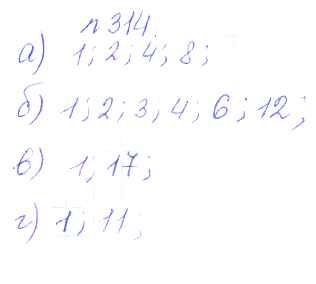 n 314.
а) 1; 2; 4; 8;
б) 1; 2; 3; 4; 6; 12;
в) 1; 17;
г) 1; 11;